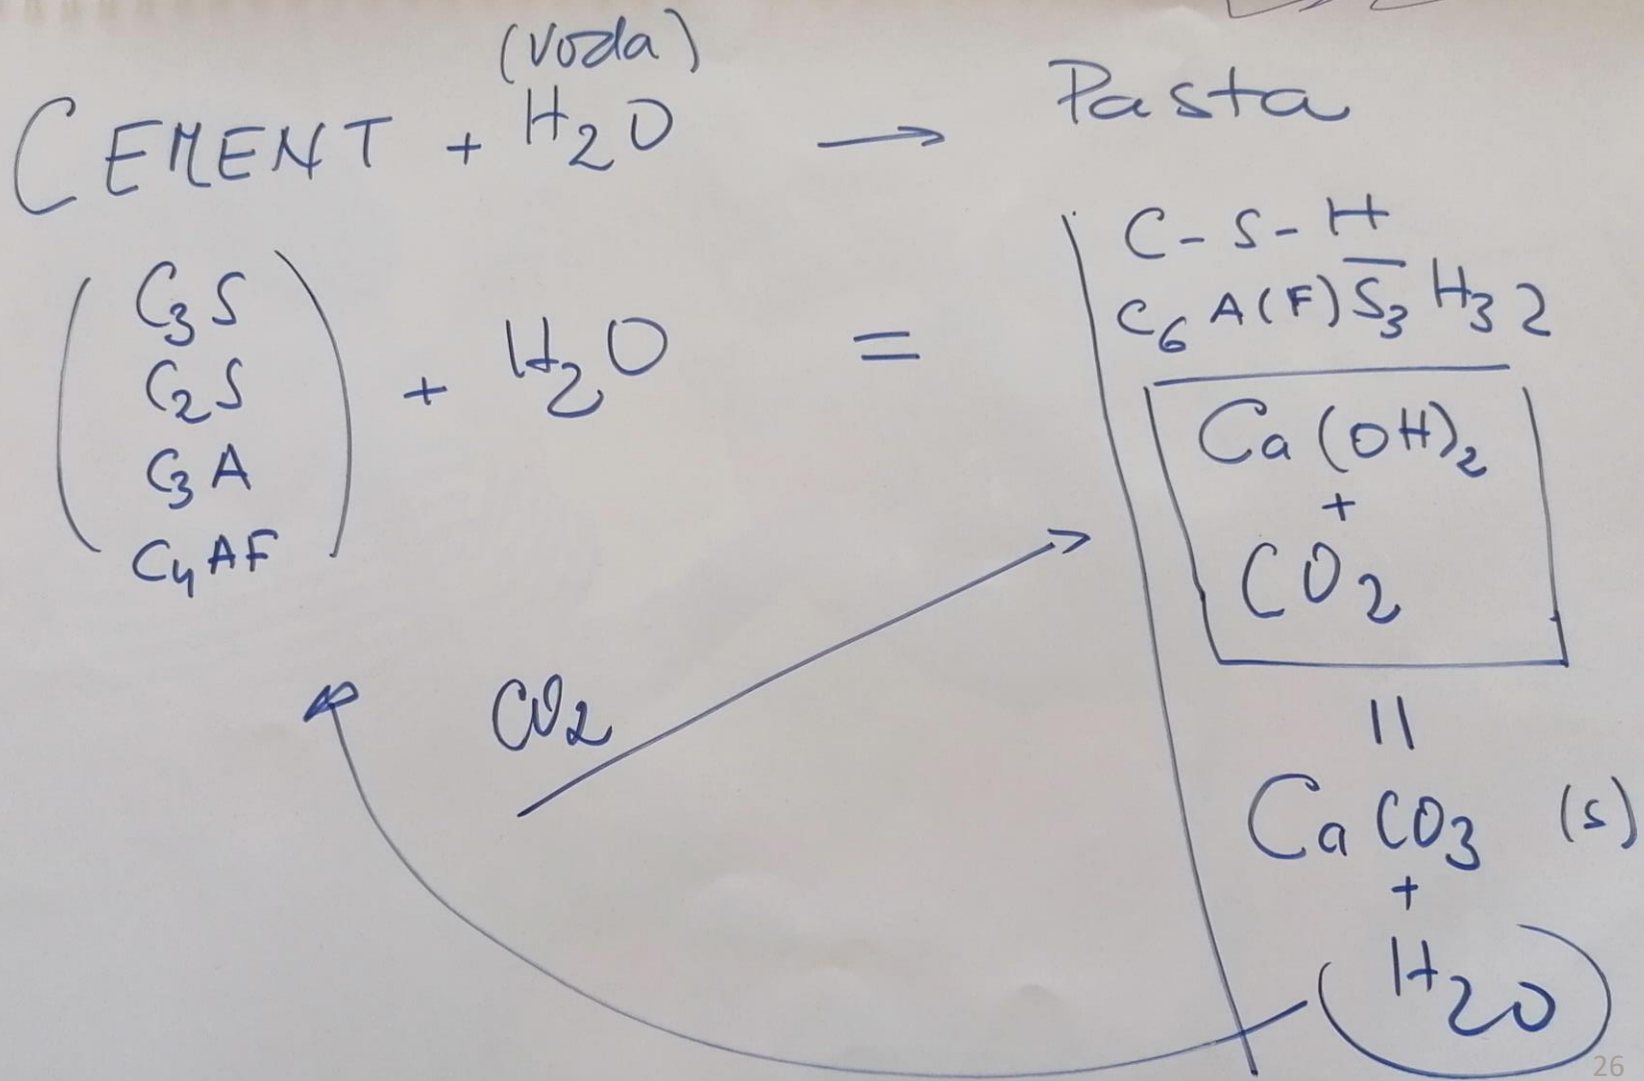 (voda)
CEMENT + H₂O → Pasta
C₃S
C₂S
C₃A
C₄AF
+ H₂O =
C-S-H
C₆A(F)S̅₃H₃2
Ca(OH)₂
+
CO₂
CO₂
||
CaCO₃ (s)
+
H₂O
26